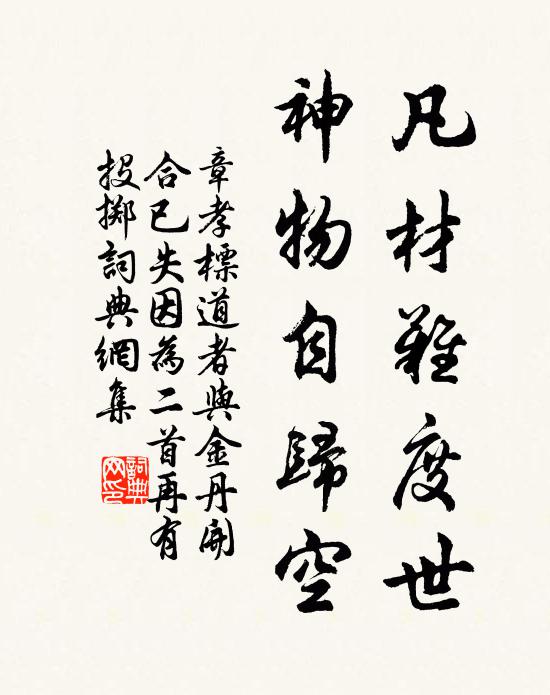 凡材難度世
神物自歸空
章孝標道者與金丹開
合已失因為二首再有
投擲詞典網集
詞典
网印